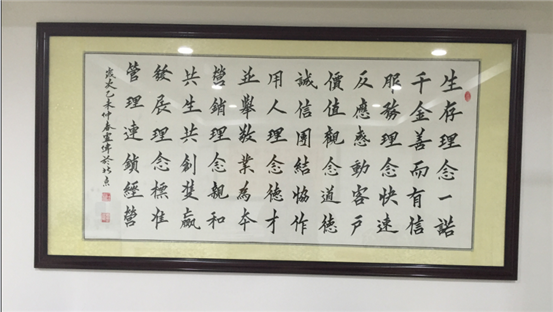 生存理念一諾
千金善而有信
服務理念快速
反應感動客戶
價值觀念道德
誠信團結協作
用人理念德才
並舉敬業為本
營銷理念親和
共生共創雙贏
發展理念標准
管理連鎖經營
歲次乙未仲春